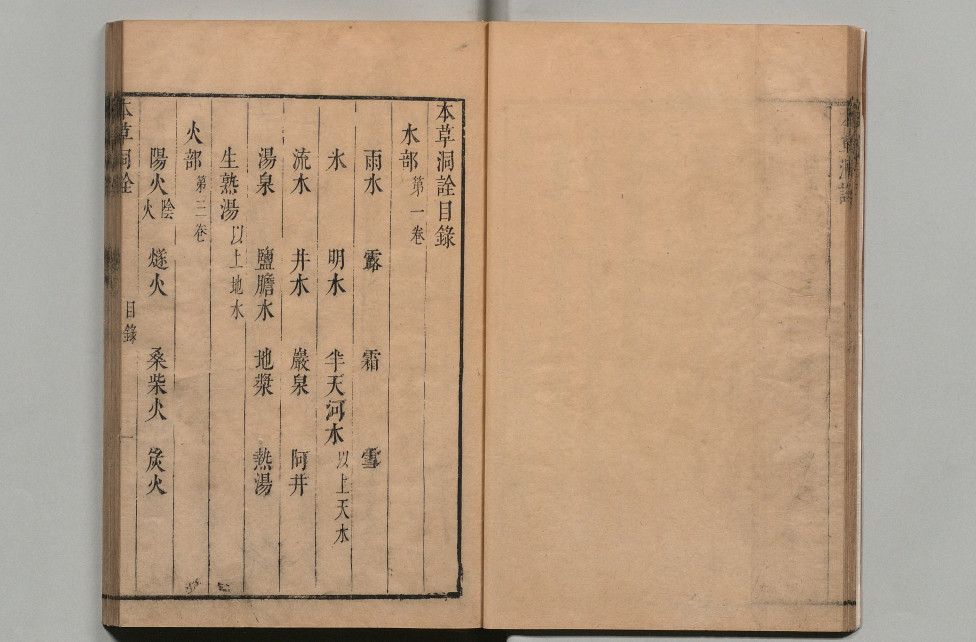 本草洞詮目錄
水部 第一卷
雨水 露 霜 雪
氷 明水 半天河水 以上天水
流水 井水 巖泉 阿井
湯泉 鹽膽水 地漿 熱湯
生熟湯 以上地水
火部 第二卷
陽火 陰火 燧火 桑柴火 灸火
本草洞詮 目錄 一